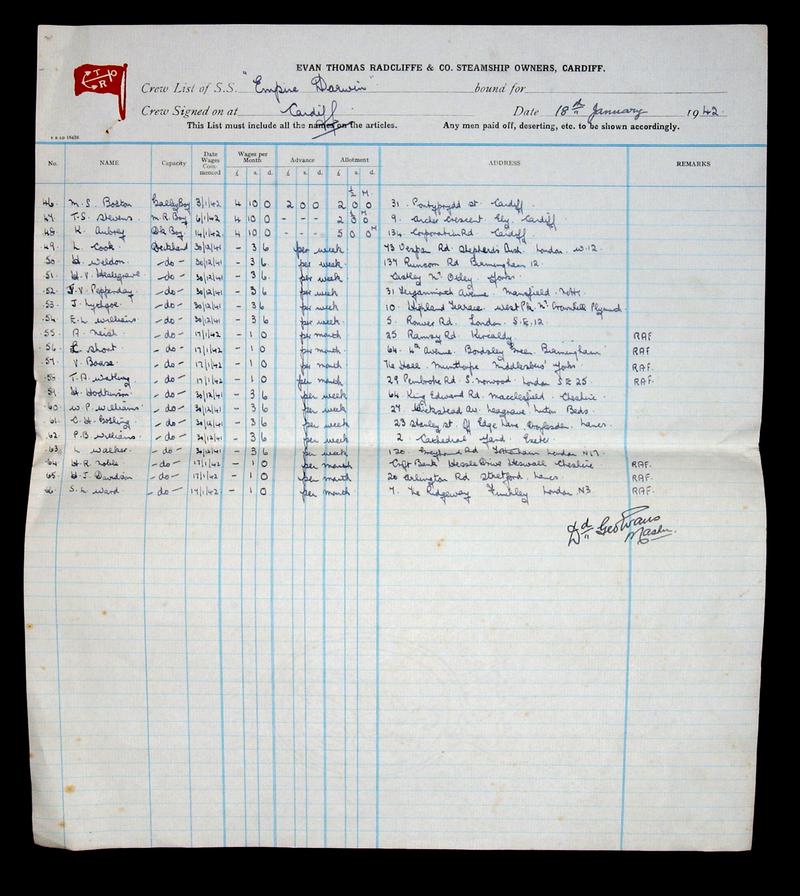 EVAN THOMAS RADCLIFFE & CO. STEAMSHIP OWNERS, CARDIFF.
T
R O
Crew List of S.S. "Empire Darwin" bound for
Crew Signed on at Cardiff Date 18th January 1942
This List must include all the names on the articles. Any men paid off, deserting, etc. to be shown accordingly.
No. NAME Capacity Date Wages Com- menced Wages per Month Advance Allotment ADDRESS REMARKS
£ s. d. £ s. d. £ s. d.
½ M.
46. M. S. Bolton Galley Boy 3/1/42 4 10 0 2 0 0 2 0 0 31. Pontypridd st. Cardiff.
47. T.S. Stevens. M.R. Boy 6/1/42 4 10 0 - - - 2 0 9. Archer Crescent Ely. Cardiff.
48. K. Aubrey Dk Boy 14/1/42 4 10 0 - - - 5 0 0 134 Corporation Rd. Cardiff.
49. L. Cook Deckhand 30/12/41 - 3 6 per week Rd Shepherds Bush. London. W.12.
50. H. Weldon. - do - 30/12/41 - 3 6 per week 137 Runcorn Rd Birmingham 12.
51. H. V. - do - 30/12/41 - 3 6 per week Nr. Otley Yorks.
52. J. V. Pepperday - do - 30/12/41 - 3 6 per week 31 Avenue. Mansfield. Notts.
53. J. - do - 30/12/41 - 3 6 per week 10 Highland Terrace. West Pk Nr Plymouth.
54. E. L. Williams - do - 30/12/41 - 3 6 per week. 5. Rd. London. S.E.12.
55. A. Neish - do - 17/1/42 - 1 0 per month 25 Ramsay Rd. Kircaldy. RAF
56. Short - do - 17/1/42 - 1 0 per month 64. 4th Avenue. Bordsley Green Birmingham RAF.
57. V. Boase. - do - 17/1/42 - 1 0 per month The Hall Middlesbro' Yorks. RAF.
58. T. A. Watling - do - 17/1/42 - 1 0 per month 29 Pembroke Rd. S. Norwood. London S.E 25. RAF.
59. H. Hodkinson - do - 30/12/41 - 3 6 per week 64 King Edward Rd. Macclesfield. Cheshire.
60. W. P. Williams - do - 30/12/41 - 3 6 per week 27 Av. Leagrave Luton Beds.
61. C. H. Golling - do - 30/12/41 - 3 6 per week 23 Stanley st. off Edge Lane Droylesden. Lancs.
62. P.B Williams. - do - 30/12/41 - 3 6 per week 2. Cathedral Yard. Exeter
63. L Walker. - do - 30/12/41 - 3 6 per week 120. Rd Tottenham London N17.
64. H. R. Noble - do - 17/1/42 - 1 0 per month Croft Bank Drive Heswall Cheshire RAF.
65. H. J. Davidson - do - 17/1/42 - 1 0 per month 20 Arlington Rd Stretford. Lancs. RAF.
66. S. L. Ward - do - 17/1/42 - 1 0 per month 7. The Ridgeway Finchley London N3 RAF.
Geo Evans
Master.